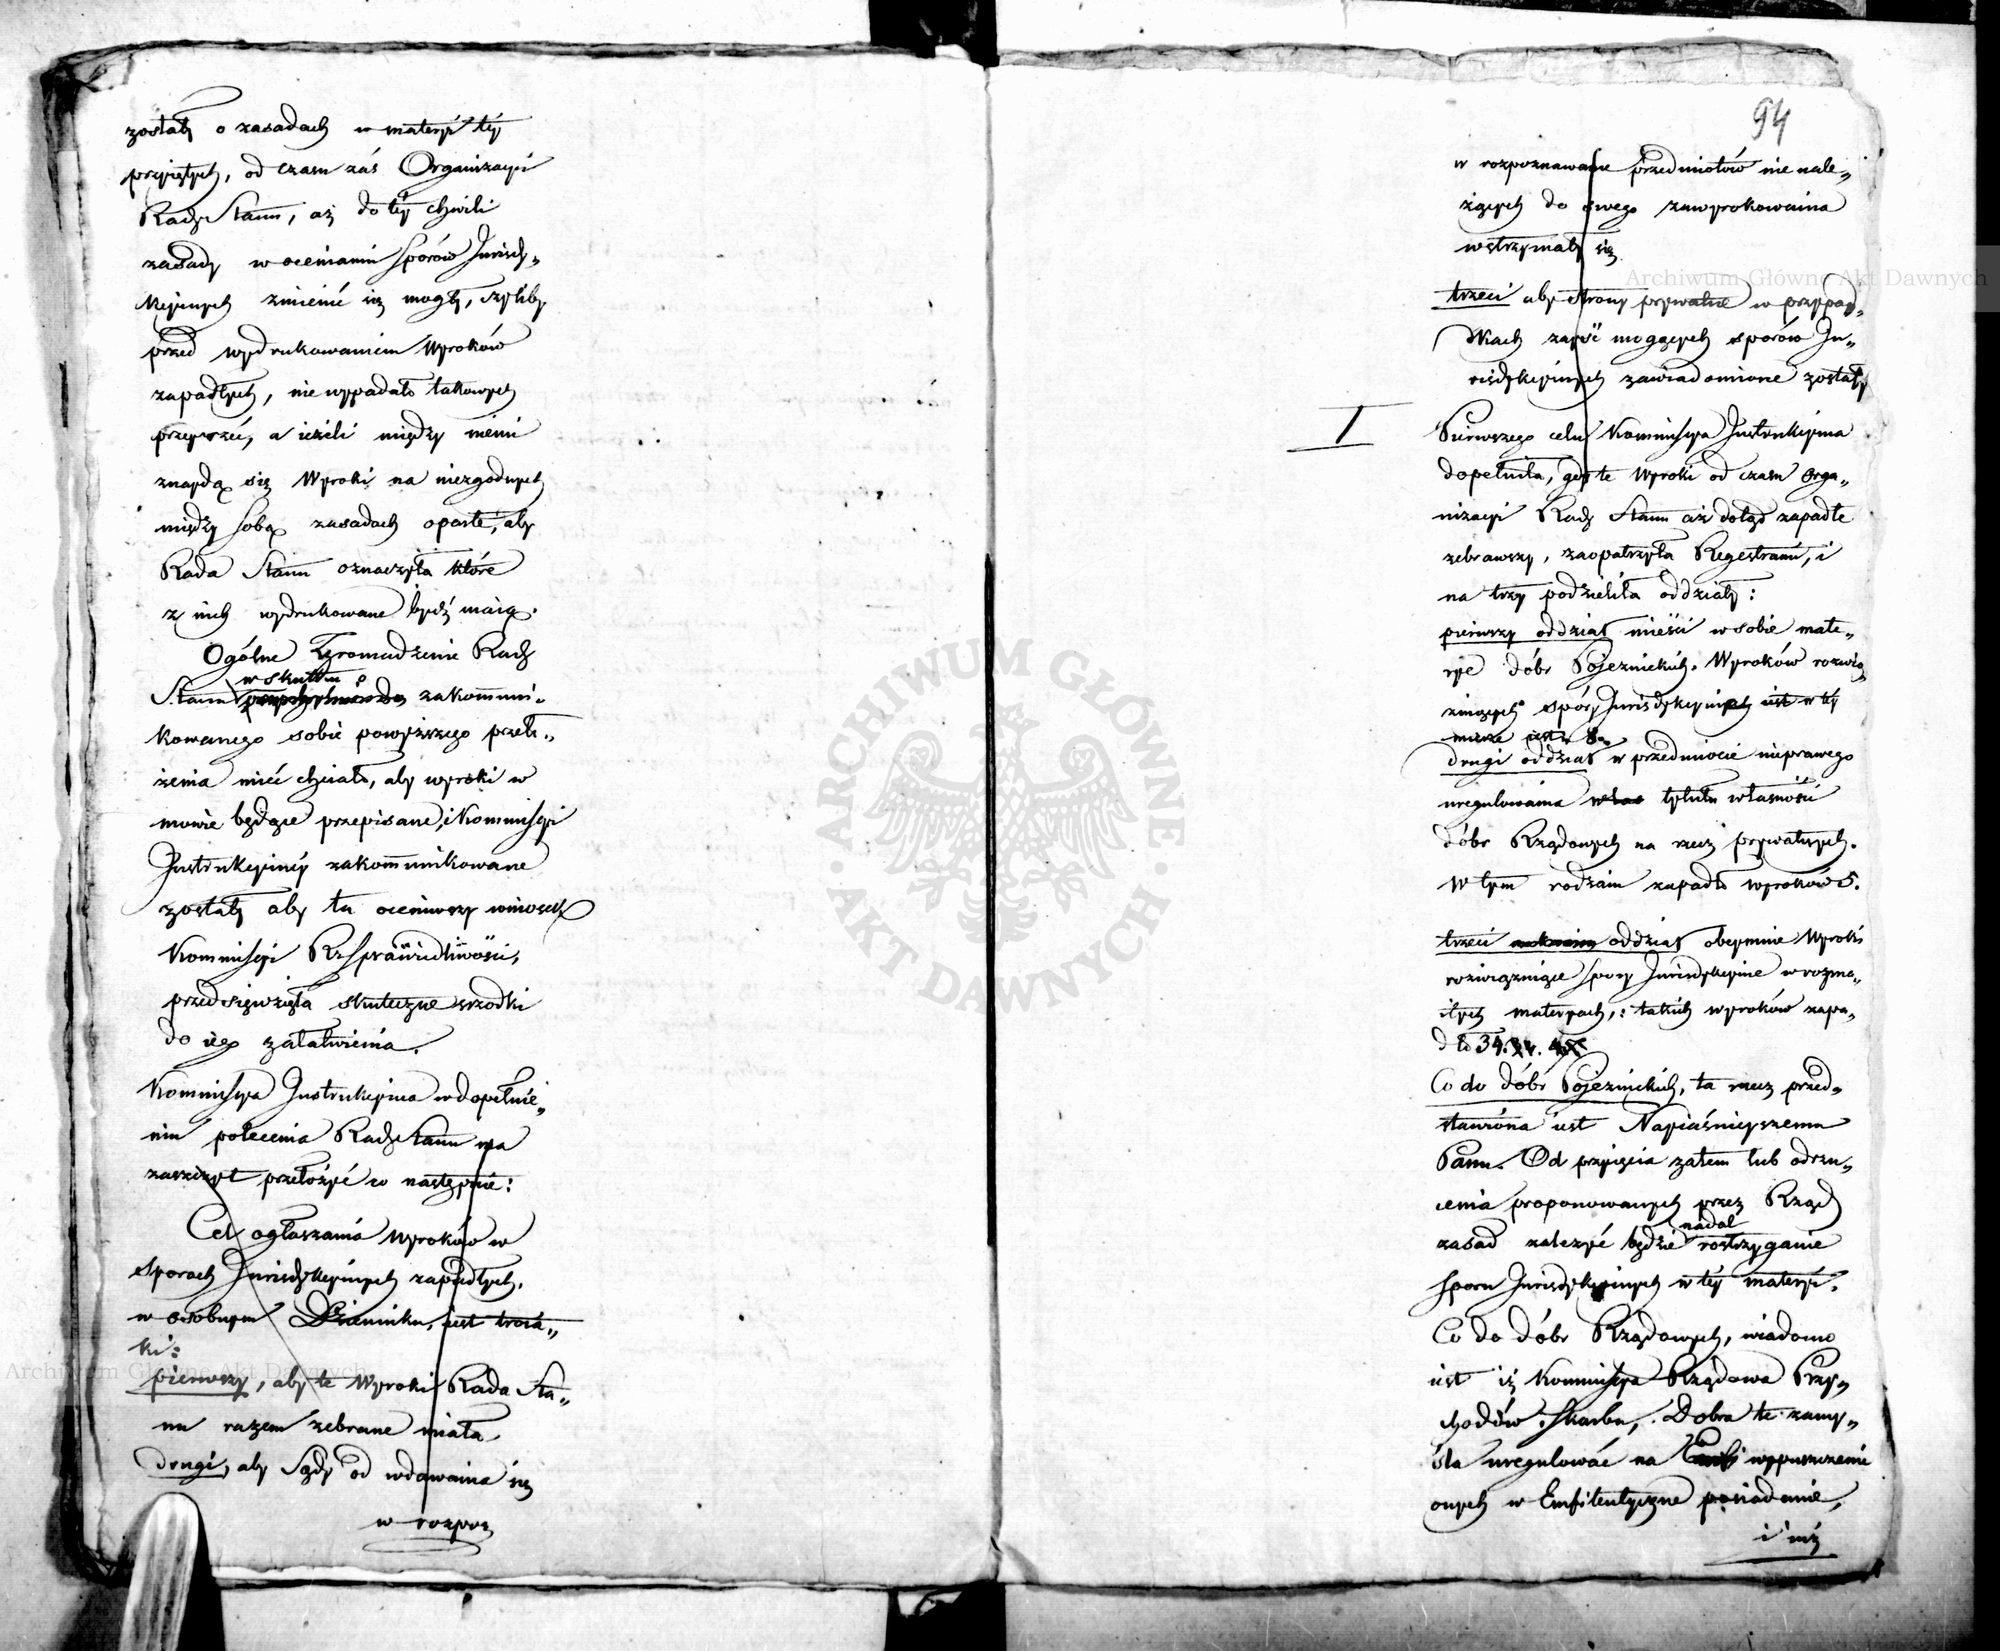 zostały o zasadach w materyi téy
przyiętych, od czasu zaś Organizacyi
Rady Stanu, aż do téy chwili
zasady w ocenianiu sporów Jurisdy„
kcyinych zmienić się mogły, czyliby
przed wydrukowaniem Wyroków
zapadłych, nie wypadało takowych
przeyrzeć, a ieżeli między niemi
znaydą się Wyroki na niezgodnych
między sobą zasadach oparte, aby
Rada Stanu oznaczyła które
z nich wydrukowane bydź maią.
Ogólne Zgromadzenie Rady
w skutku
Stanu zakommuni„
kowanego sobie powyższego przeło„
żenia mieć chciało, aby wyroki w
mowie będące przepisane, i Kommissyi
Instrukcyinéy zakommunikowane
zostały aby ta oceniwszy wniosek
Kommissyi R. Sprawiedliwości,
przedsięwzięła skuteczne srzodki
do iego załatwienia.
Kommissya Instrukcyina w dopełnie„
niu polecenia Rady Stanu ma
zaszczyt przełożyć co następuie:
Cel ogłaszania Wyroków w
sporach Jurisdykcyinych zapadłych,
w osobnym Dzienniku, iest troia„
ki:
pierwszy, aby te Wyroki Rada Sta„
nu razem zebrane miała
drugi, aby Sądy od wdawania się
w rozpoz
94
w rozpoznawanie przedmiotów nie nale„
żących do swego zawyrokowania
wstrzymały się
trzeci aby strony prywatne w przypad„
kach zayść mogących sporów Ju„
risdykcyinych zawiadomione zostały
I
Pierwszego celu Kommissya Instrukcyina
dopełniła, gdy te Wyroki od czasu Orga„
nizacyi Rady Stanu aż dotąd zapadłe
zebrawszy, zaopatrzyła Regestrami, i
na trzy podzieliła oddziały:
pierwszy oddział mieści w sobie mate„
rye dóbr Pojeznickich. Wyroków rozwią
zuiących spory Jurisdykcyinych iest w téy
mierze iest 8.
drugi oddział w przedmiocie nieprawego
uregulowania tytułu własności
dóbr Rządowych na rzecz prywatnych.
W tym rodzaiu zapadło wyroków 5.
trzeci oddział obeymuie Wyroki
rozwiązuiące spory Jurisdykcyine w rozma„
itych materyach, : takich wyroków zapa„
dło 34.
Co do dóbr Pojeznickich, ta rzecz przed„
stawiona iest Nayiaśnieyszemu
Panu. Od przyięcia zatem lub odrzu„
cenia proponowanych przez Rząd
nadal
zasad zależyć będzie rostrzyganie
sporu Jurisdykcyinych w téy materyi.
Co do dóbr Rządowych, wiadomo
iest iż Kommissya Rządowa Przy„
chodów i Skarbu, Dobra te zamy„
śla uregulować na wypuszczenie
onych w Emfiteutyczne posiadanie,
i iuż
Archiwum Główne Akt Dawnych
Archiwum Główne Akt Dawnych
· ARCHIWUM GŁÓWNE · AKT DAWNYCH